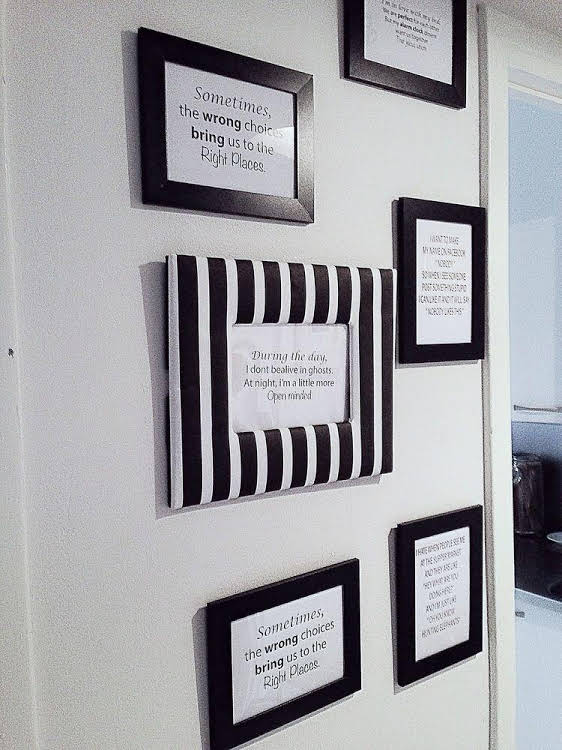 I'm in love with my bed,
We are perfect for each other
But my alarm clock doesnt
want us together
That
Sometimes,
the wrong choices
bring us to the
Right Places.
I WANT TO MAKE
MY NAME ON FACEBOOK
"NOBODY"
SO WHEN I SEE SOMEONE
POST SOMETHING STUPID
I CAN LIKE IT AND IT WILL SAY
"NOBODY LIKES THIS."
During the day,
I dont bealive in ghosts.
At night, i'm a little more
Open minded
I HATE WHEN PEOPLE SEE ME
AT THE SUPERMARKET
AND THEY ARE LIKE
"HEY WHAT ARE YOU
DOING HERE?"
AND I'M JUST LIKE
"OH YOU KNOW
HUNTING ELEPHANTS"
Sometimes,
the wrong choices
bring us to the
Right Places.